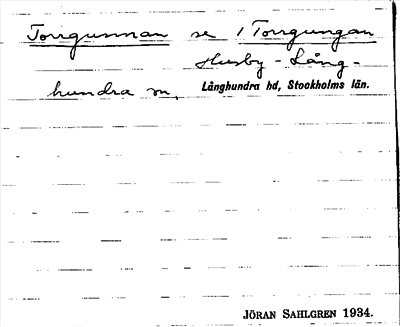 Torrgunnan se 1 Torrgungan
Husby-Lång-
hundra sn, Långhundra hd, Stockholms län.
JÖRAN SAHLGREN 1934.